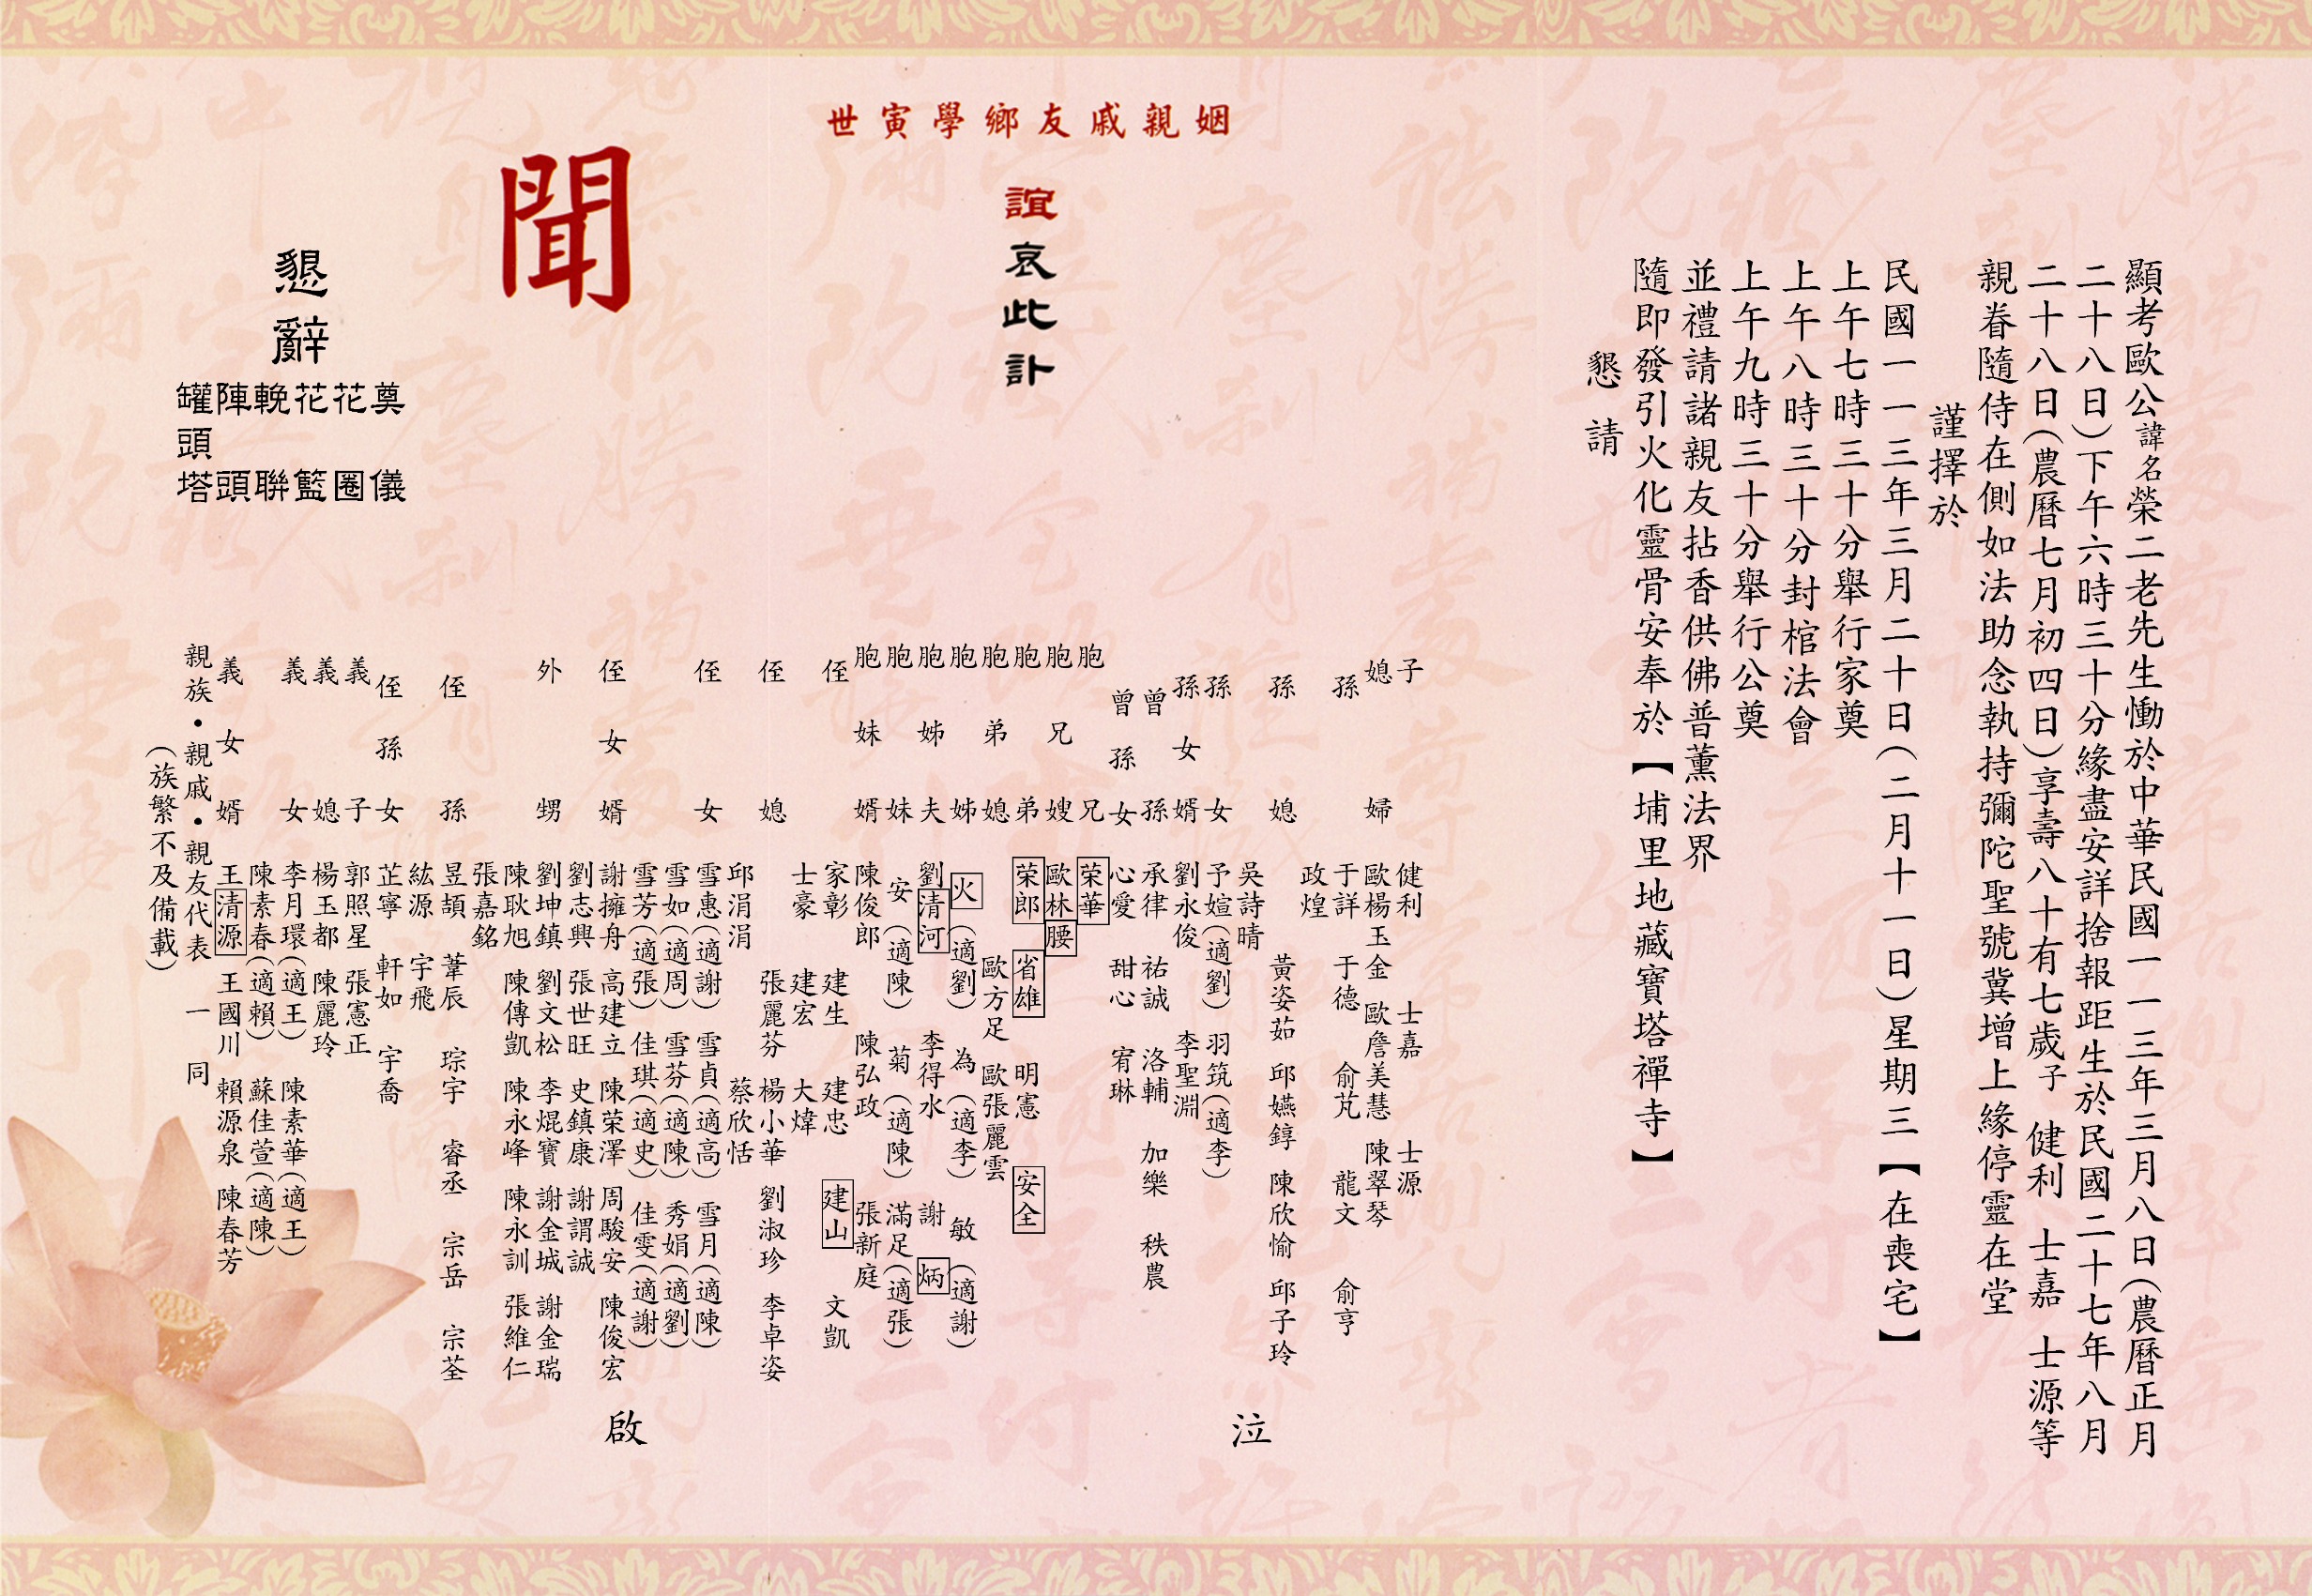 顯考歐公諱名榮二老先生慟於中華民國一一三年三月八日(農曆正月
二十八日)下午六時三十分緣盡安詳捨報距生於民國二十七年八月
二十八日(農曆七月初四日)享壽八十有七歲子 健利 士嘉 士源等
親眷隨侍在側如法助念執持彌陀聖號冀增上緣停靈在堂
謹擇於
民國一一三年三月二十日(二月十一日)星期三【在喪宅】
上午七時三十分舉行家奠
上午八時三十分封棺法會
上午九時三十分舉行公奠
並禮請諸親友拈香供佛普薰法界
隨即發引火化靈骨安奉於【埔里地藏寶塔禪寺】
懇請
姻親戚友鄉學寅世
誼哀此訃
聞
子 健利 士嘉 士源
媳婦 歐楊玉金 歐詹美慧 陳翠琴
孫 于詳 于德 俞芃 龍文 俞亨
政煌
孫媳 黃姿茹 邱嬿錞 陳欣愉 邱子玲
吳詩晴
孫女 予媗(適劉) 羽筑(適李)
孫女婿 劉永俊 李聖淵
曾孫 承律 祐誠 洛輔 加樂 秩農
曾孫女 心愛 甜心 宥琳
胞兄 荣華
胞兄嫂 歐林腰
胞弟 荣郎 省雄 明憲 安全
胞弟媳 歐方足 歐張麗雲
胞姊 火(適劉) 為(適李) 敏(適謝)
胞姊夫 劉清河 李得水 謝炳
胞妹 安(適陳) 菊(適陳) 滿足(適張)
胞妹婿 陳俊郎 陳弘政 張新庭
侄 家彰 建生 建忠 建山 文凱
士豪 建宏 大煒
侄媳 張麗芬 楊小華 劉淑珍 李卓姿
邱涓涓 蔡欣恬
侄女 雪惠(適謝) 雪貞(適高) 雪月(適陳)
雪如(適周) 雪芬(適陳) 秀娟(適劉)
雪芳(適張) 佳琪(適史) 佳雯(適謝)
侄女婿 謝擁舟 高建立 陳荣澤 周駿安 陳俊宏
劉志興 張世旺 史鎮康 謝謂誠
外甥 劉坤鎮 劉文松 李焜寶 謝金城 謝金瑞
陳耿旭 陳傳凱 陳永峰 陳永訓 張維仁
張嘉銘
侄孫 昱頡 葦辰 琮宇 睿丞 宗岳 宗荃
紘源 宇飛
侄孫女 芷寧 軒如 宇喬
義子 郭照星 張憲正
義媳 楊玉都 陳麗玲
義女 李月環(適王) 陳素華(適王)
陳素春(適賴) 蘇佳萱(適陳)
義女婿 王清源 王國川 賴源泉 陳春芳
親族・親戚・親友代表 一同
(族繁不及備載)
泣
啟
懇辭
奠儀
花圈
花籃
輓聯
陣頭
罐頭塔